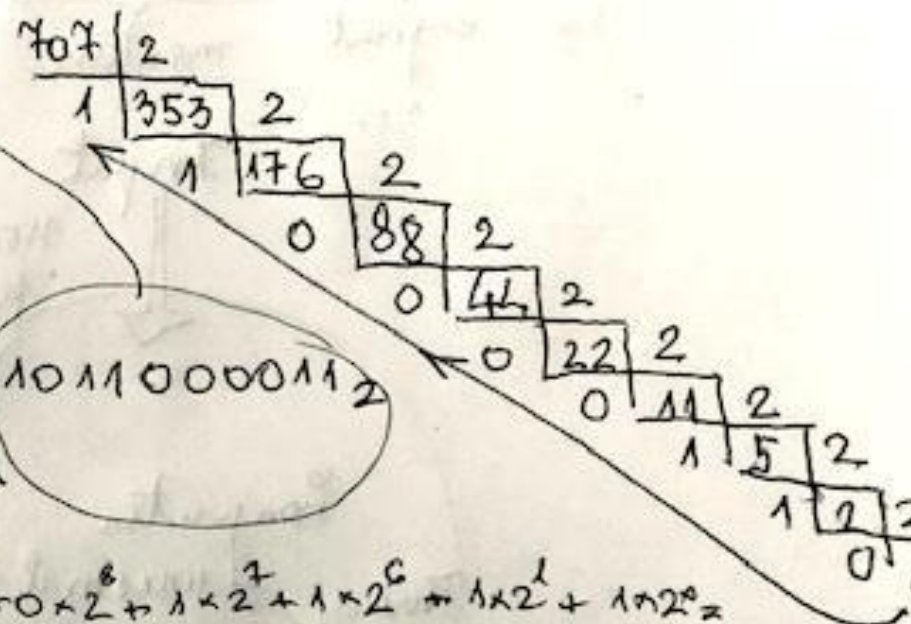 707 2
1 353 2
1 176 2
0 88 2
0 44 2
0 22 2
0 11 2
1 5 2
1 2 2
0
1011000011₂
0×2⁸+1×2⁷+1×2⁶+1×2¹+1×2⁰=